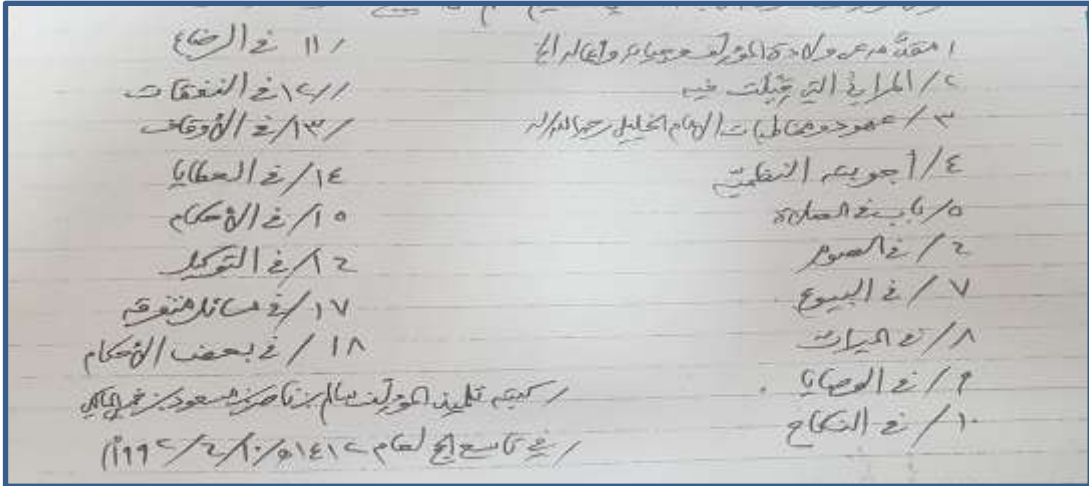 ١ مقدمة عن ولادة المؤلف وحياته وأعماله الخ
٢/ المراثي التي قيلت فيه
٣/ عهود ومخاطبات الإمام الخليل رحمه الله
٤/ أجوبته النظمية
٥/ باب في الصلاة
٦/ في الصوم
٧/ في البيوع
٨/ في الميراث
٩/ في الوصايا
١٠/ في النكاح
١١/ في الرضاع
١٢/ في النفقات
١٣/ في الأوقاف
١٤/ في العطايا
١٥/ في الأحكام
١٦/ في التوكيل
١٧/ في مسائل متفرقة
١٨/ في بعض الأحكام
كتبه تلميذ المؤلف سالم بن ناصر بن مسعود بن
في تاسع الحج لعام ١٤١٢ه/١٠/٦/١٩٩٢م